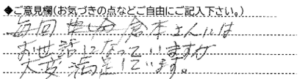 ◆ご意見欄(お気づきの点などご自由にご記入下さい。)
毎回 倉本さんには
お世話になっていますが
大変満足しています。